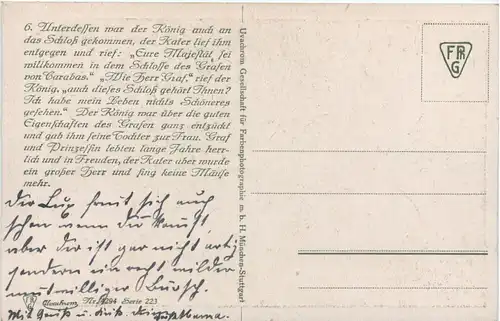 6. Unterdessen war der König auch an
das Schloß gekommen, der Kater lief ihm
entgegen und rief: „Eure Majestät, sei
willkommen in dem Schlosse des Grafen
von Carabas.“ „Wie Herr Graf,“ rief der
König, „auch dieses Schloß gehört Ihnen?
Ich habe mein Leben nichts Schöneres
gesehen.“ Der König war über die guten
Eigenschaften des Grafen ganz entzückt
und gab ihm seine Tochter zur Frau. Graf
und Prinzessin lebten lange Jahre herr-
lich und in Freuden, der Kater aber wurde
ein großer Herr und fing keine Mäuse
mehr.
Der sich auch
schon wenn du
aber der ist gar nicht artig
sondern ein recht wilder
mutwilliger Bursch.
Uvachrom Nr. 4294 Serie 223
Mit Gruß u. Kuß
Uvachrom Gesellschaft für Farbenphotographie m. b. H. München-Stuttgart
FRG